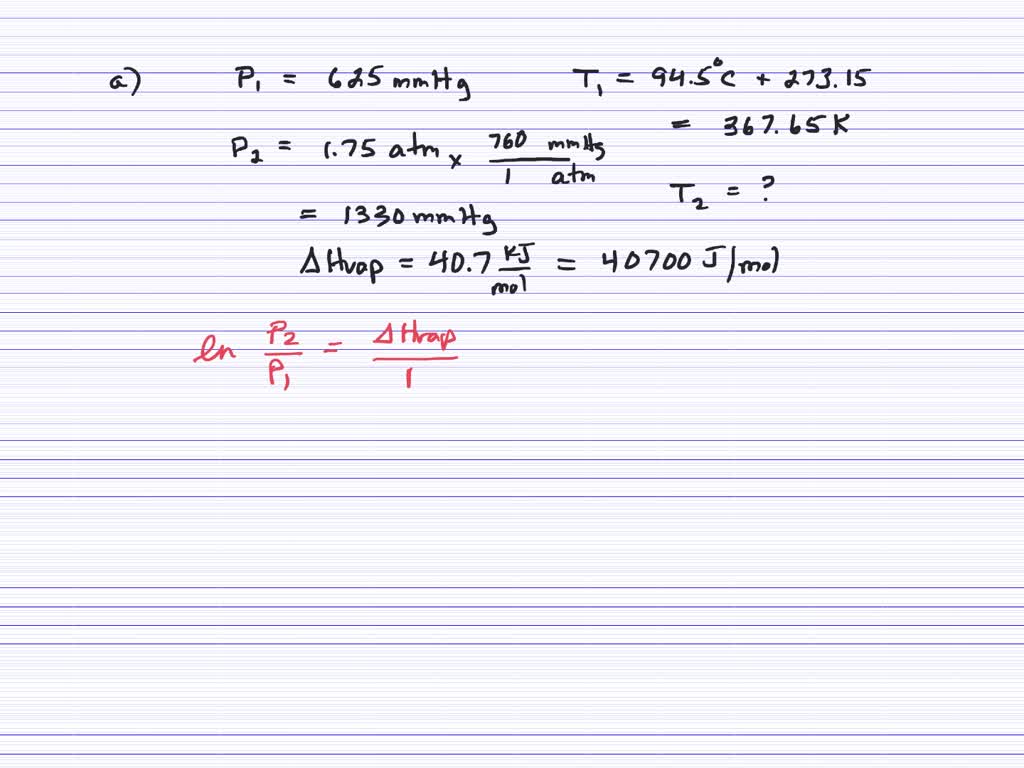 a) P₁ = 625 mmHg T₁ = 94.5°C + 273.15
= 367.65 K
P₂ = 1.75 atm × 760 mmHg / 1 atm
T₂ = ?
= 1330 mmHg
ΔHvap = 40.7 KJ/mol = 40700 J/mol
ln P₂/P₁ = ΔHvap/1